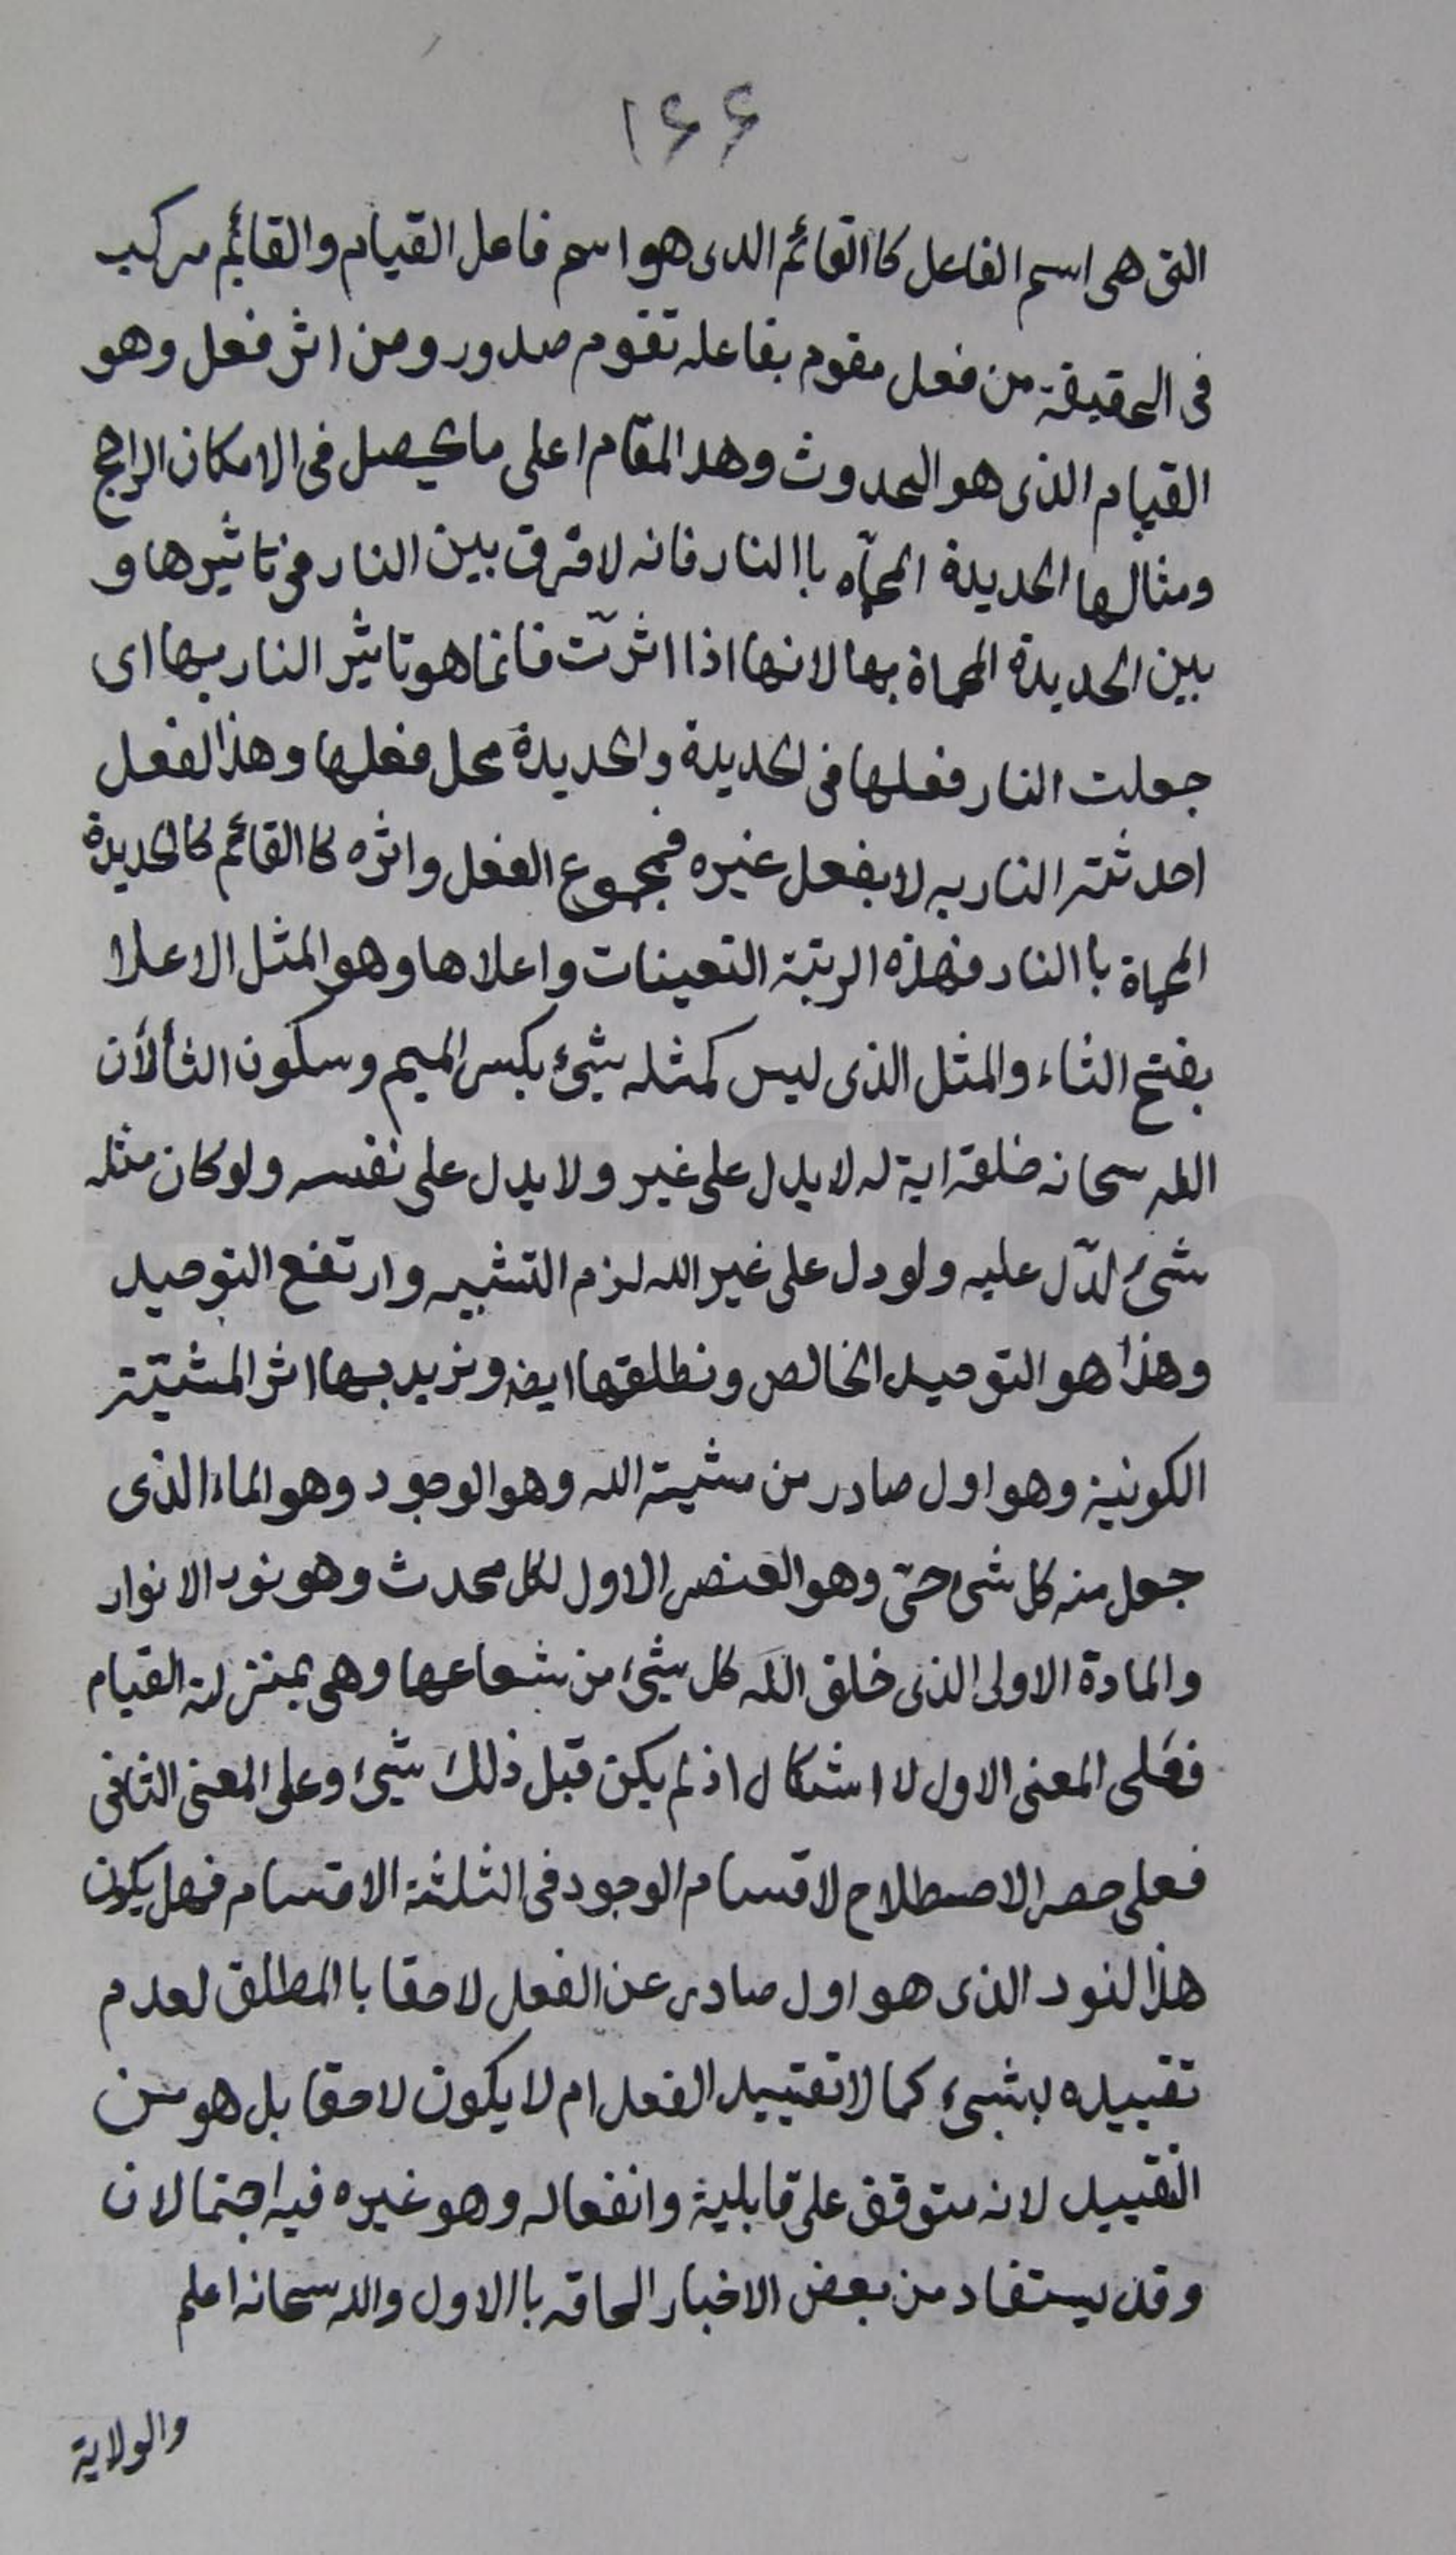 ۱۶۶
التى هى اسم الفاعل كاالقائم الدى هو اسم فاعل القيام والقائم مركب
فى الحقيقة من فعل مقوم بفاعله تقوم صدور ومن اثر فعل وهو
القيام الذى هو الحدوث وهد المقام اعلى ما يحصل فى الامكان الراجح
ومثالها الحديدة المحمآه باالنار فانه لا فرق بين النار فى تاثيرها و
بين الحديدة المحماة بها لانها اذا اثرتّ فانما هو تاثير النار بها اى
جعلت النار فعلها فى لحديدة والحديدة محل فعلها وهذالفعل
احدثته النار به لا بفعل غيره فمجموع الفعل واثره كاالقائم كالحديدة
المحماة باالنار فهذه الرتبة التعينات واعلاها وهو المثل الاعلا
بفتح الثاء والمثل الذى ليس كمثله شيئ بكسر الميم وسكون الثألأن
الله سحانه خلقة اية له لا يدل على غير ولا يدل على نفسه ولو كان مثله
شئ لدّل عليه ولو دل على غير الله لزم التشبيه وارتفع التوحيد
وهذا هو التوحيد الخالص ونطلقها ايضه ونريد بها اثر المشيّته
الكونية وهو اول صادر من مشيته الله وهو الوجود وهو الماء الذى
جعل منه كل شئ حىّ وهو العنصر الاول لكل محدث وهو نور الانوار
والمادة الاولى الذى خلق الله كل شيئ من شعاعها وهى بمنزلة القيام
فعلى المعنى الاول لا اشكال اذ لم يكن قبل ذلك شيئ وعلى المعنى الثانى
فعلى حصر الاصطلاح لاقسام الوجود فى الثلثة الاقسام فهل يكون
هذالنور الذى هو اول صادر عن الفعل لاحقا باالمطلق لعدم
تقييده بشيئ كما لا تقييد الفعل ام لا يكون لاحقا بل هو من
التقييد لانه متوقف على قابلية وانفعاله وهو غيره فيه احتمالان
وقد يستفاد من بعض الاخبار الحاقه باالاول والله سحانه اعلم
والولاية